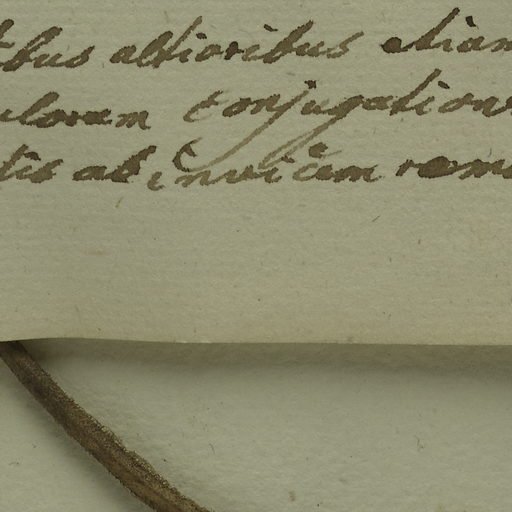 tbus altioribus etiam
ulorum conjugation
tis ab invicem remo